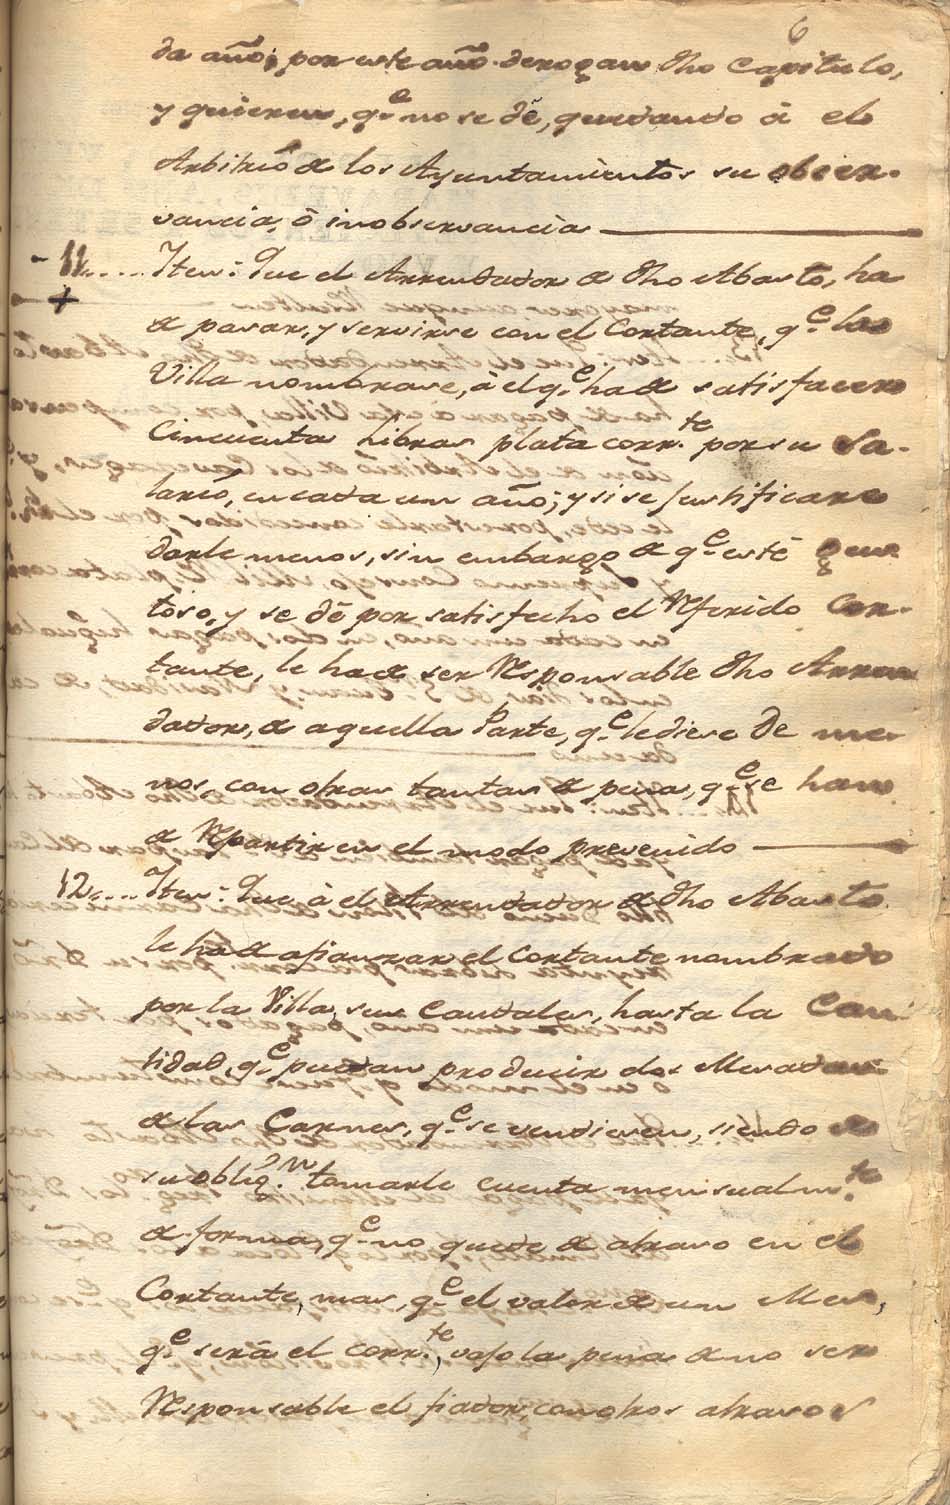 6
da año; por este año derogan dho Capitulo,
y quieren, q.e no se dè, quedando à el
Arbitrio de los Ayuntamientos su obser-
vancia, ò inobservancia
11.... Iten: Que el Arrendador de dho Abasto, ha
de pasar, y servirse con el Cortante, q.e la
Villa nombrare, à el q.e ha de satisfacer
Cinquenta libras plata corr.te por su Sa-
lario, en cada un año; y si se justificare
darle menos, sin embargo de q.e estè gus-
toso, y se dè por satisfecho el Referido Cor-
tante, le ha de ser Responsable dho Arren-
dador, de aquella Parte, q.e le diere de me-
nos, con otras tantas de pena, q.e se han
de Repartir en el modo prevenido
12.... Iten: Que à el Arrendador de dho Abasto
le ha de afianzar el Cortante nombrado
por la Villa, sus Caudales, hasta la Can-
tidad, q.e puedan producir dos Mesadas
de las Carnes, q.e se vendieren, siendo de
su oblig.n tomarle cuenta mensualm.te
de forma, q.e no quede de atraso en el
Cortante, mas, q.e el valor de un Mes,
q.e serà el corr.te, vajo la pena de no ser
Responsable el fiador, con otros atrasos